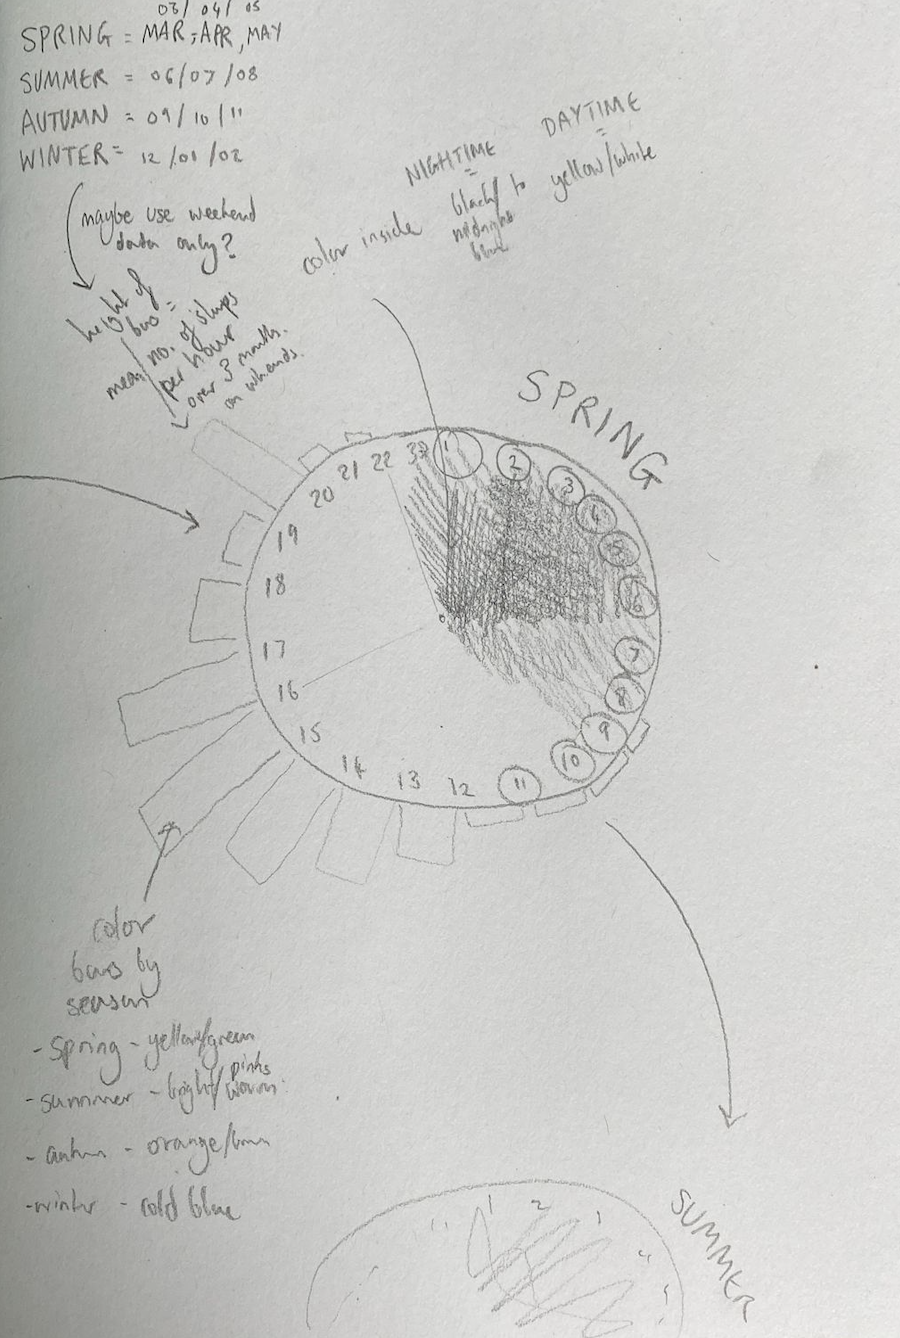 03/ 04/ 05
SPRING = MAR, APR, MAY
SUMMER = 06/07/08
AUTUMN = 09/10/11
WINTER = 12/01/02
maybe use weekend
data only?
height of
bar =
mean no. of steps
per hour
over 3 month.
on wkends.
NIGHTIME = DAYTIME =
color inside black/ to yellow/white
midnight
blue
SPRING
1
2
3
4
5
6
7
8
9
10
11
12
13
14
15
16
17
18
19
20
21
22
color
bars by
season
- Spring - yellow/green
pinks
- summer - bright/warm
- autumn - orange/brown
- winter - cold blue
SUMMER
11 1 2